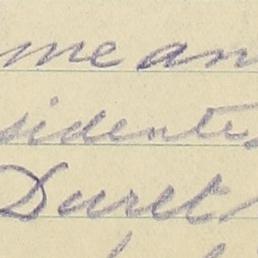 me an
sidente
Duret